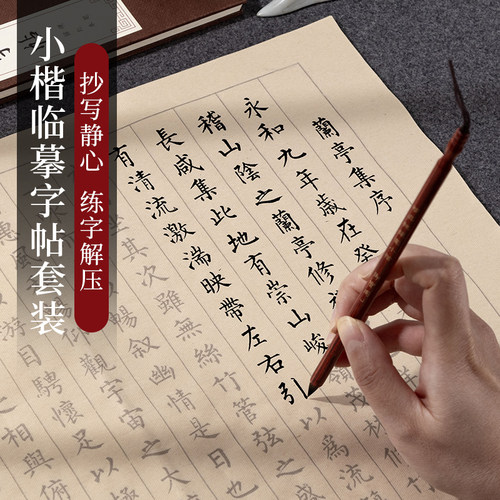 小楷临摹字帖套装
抄写静心 练字解压
蘭亭集序
永和九年歲在癸
稽山陰之蘭亭修
長咸集此地有崇山峻
有清流激湍映帶左右引以為流
其次雖無絲竹管弦之
暢敘幽情是日也
觀宇宙之大
遊目騁懷足以
相與俯